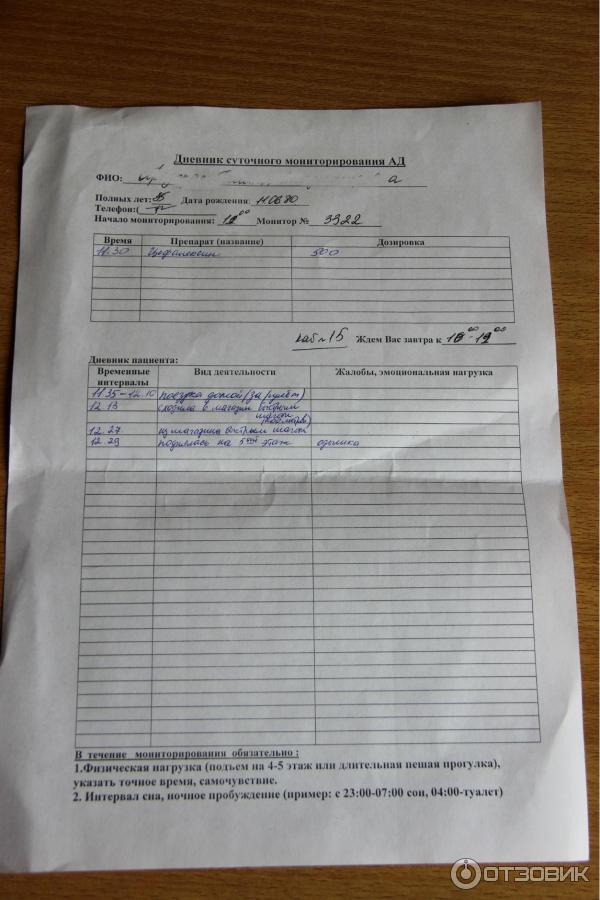 Дневник суточного мониторирования АД
ФИО: а
Полных лет: 35 Дата рождения: 110680
Телефон:(
Начало мониторирования: 00 Монитор № 3922
Время Препарат (название) Дозировка
11.30 Цефалексин 500
каб №15 Ждем Вас завтра к
Дневник пациента:
Временные интервалы Вид деятельности Жалобы, эмоциональная нагрузка
11.35-12.10 поездка домой (за рулем)
12.13 сходила в магазин быстрым
шагом
12.27 из магазина быстрым шагом
12.29 поднялась на 5ый этаж одышка
В течение мониторирования обязательно :
1.Физическая нагрузка (подъем на 4-5 этаж или длительная пешая прогулка),
указать точное время, самочувствие.
2. Интервал сна, ночное пробуждение (пример: с 23:00-07:00 сон, 04:00-туалет)
ОТЗОВИК